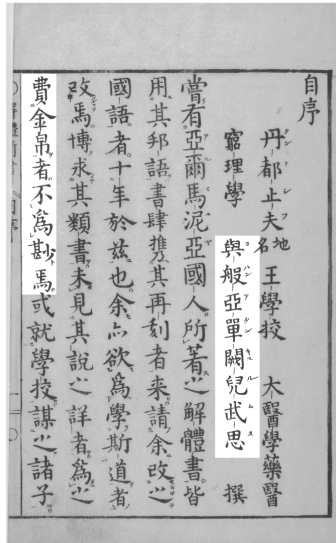 自序
丹都止夫地名王學挍　大醫學藥醫
窮理學　與般亞單闕兒武思　撰
嘗有亞爾馬泥亞國人所著之解體書皆
用其邦語書肆携其再刻者来請余改之
國語者十年於兹也余亦欲為學斯道者
改焉博求其類書未見其說之詳者為之
費金帛者不為尠焉或就學挍謀之諸子